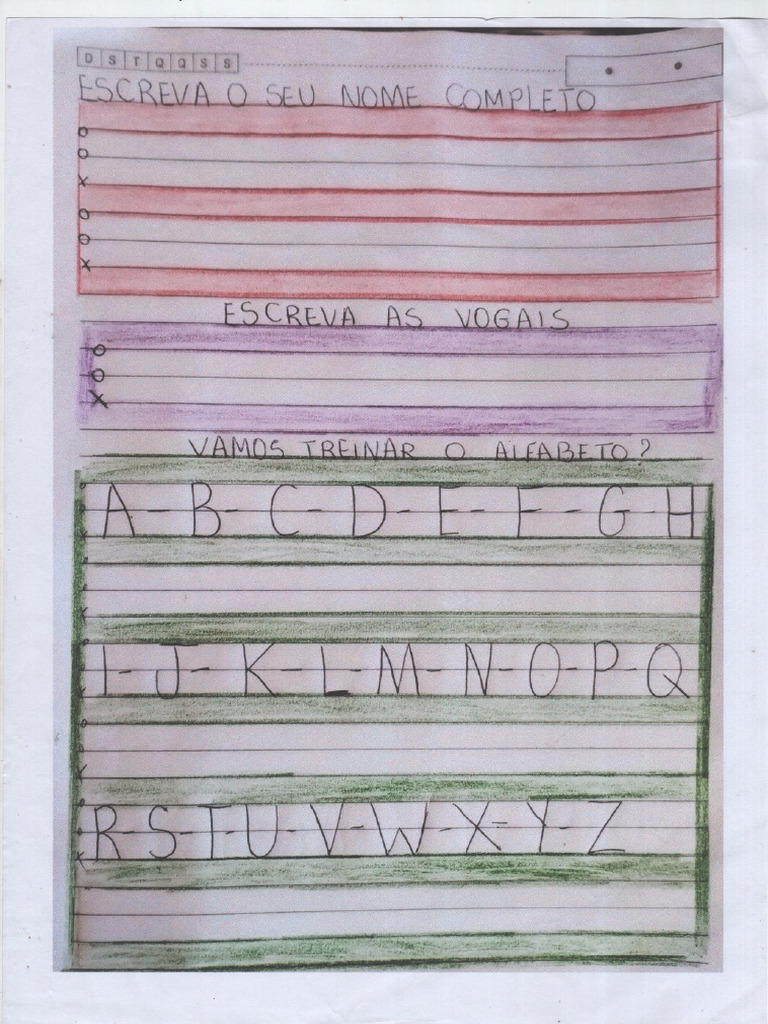 D S T Q Q S S
ESCREVA O SEU NOME COMPLETO
ESCREVA AS VOGAIS
VAMOS TREINAR O ALFABETO?
A - B - C - D - E - F - G - H
I - J - K - L - M - N - O - P - Q
R - S - T - U - V - W - X - Y - Z